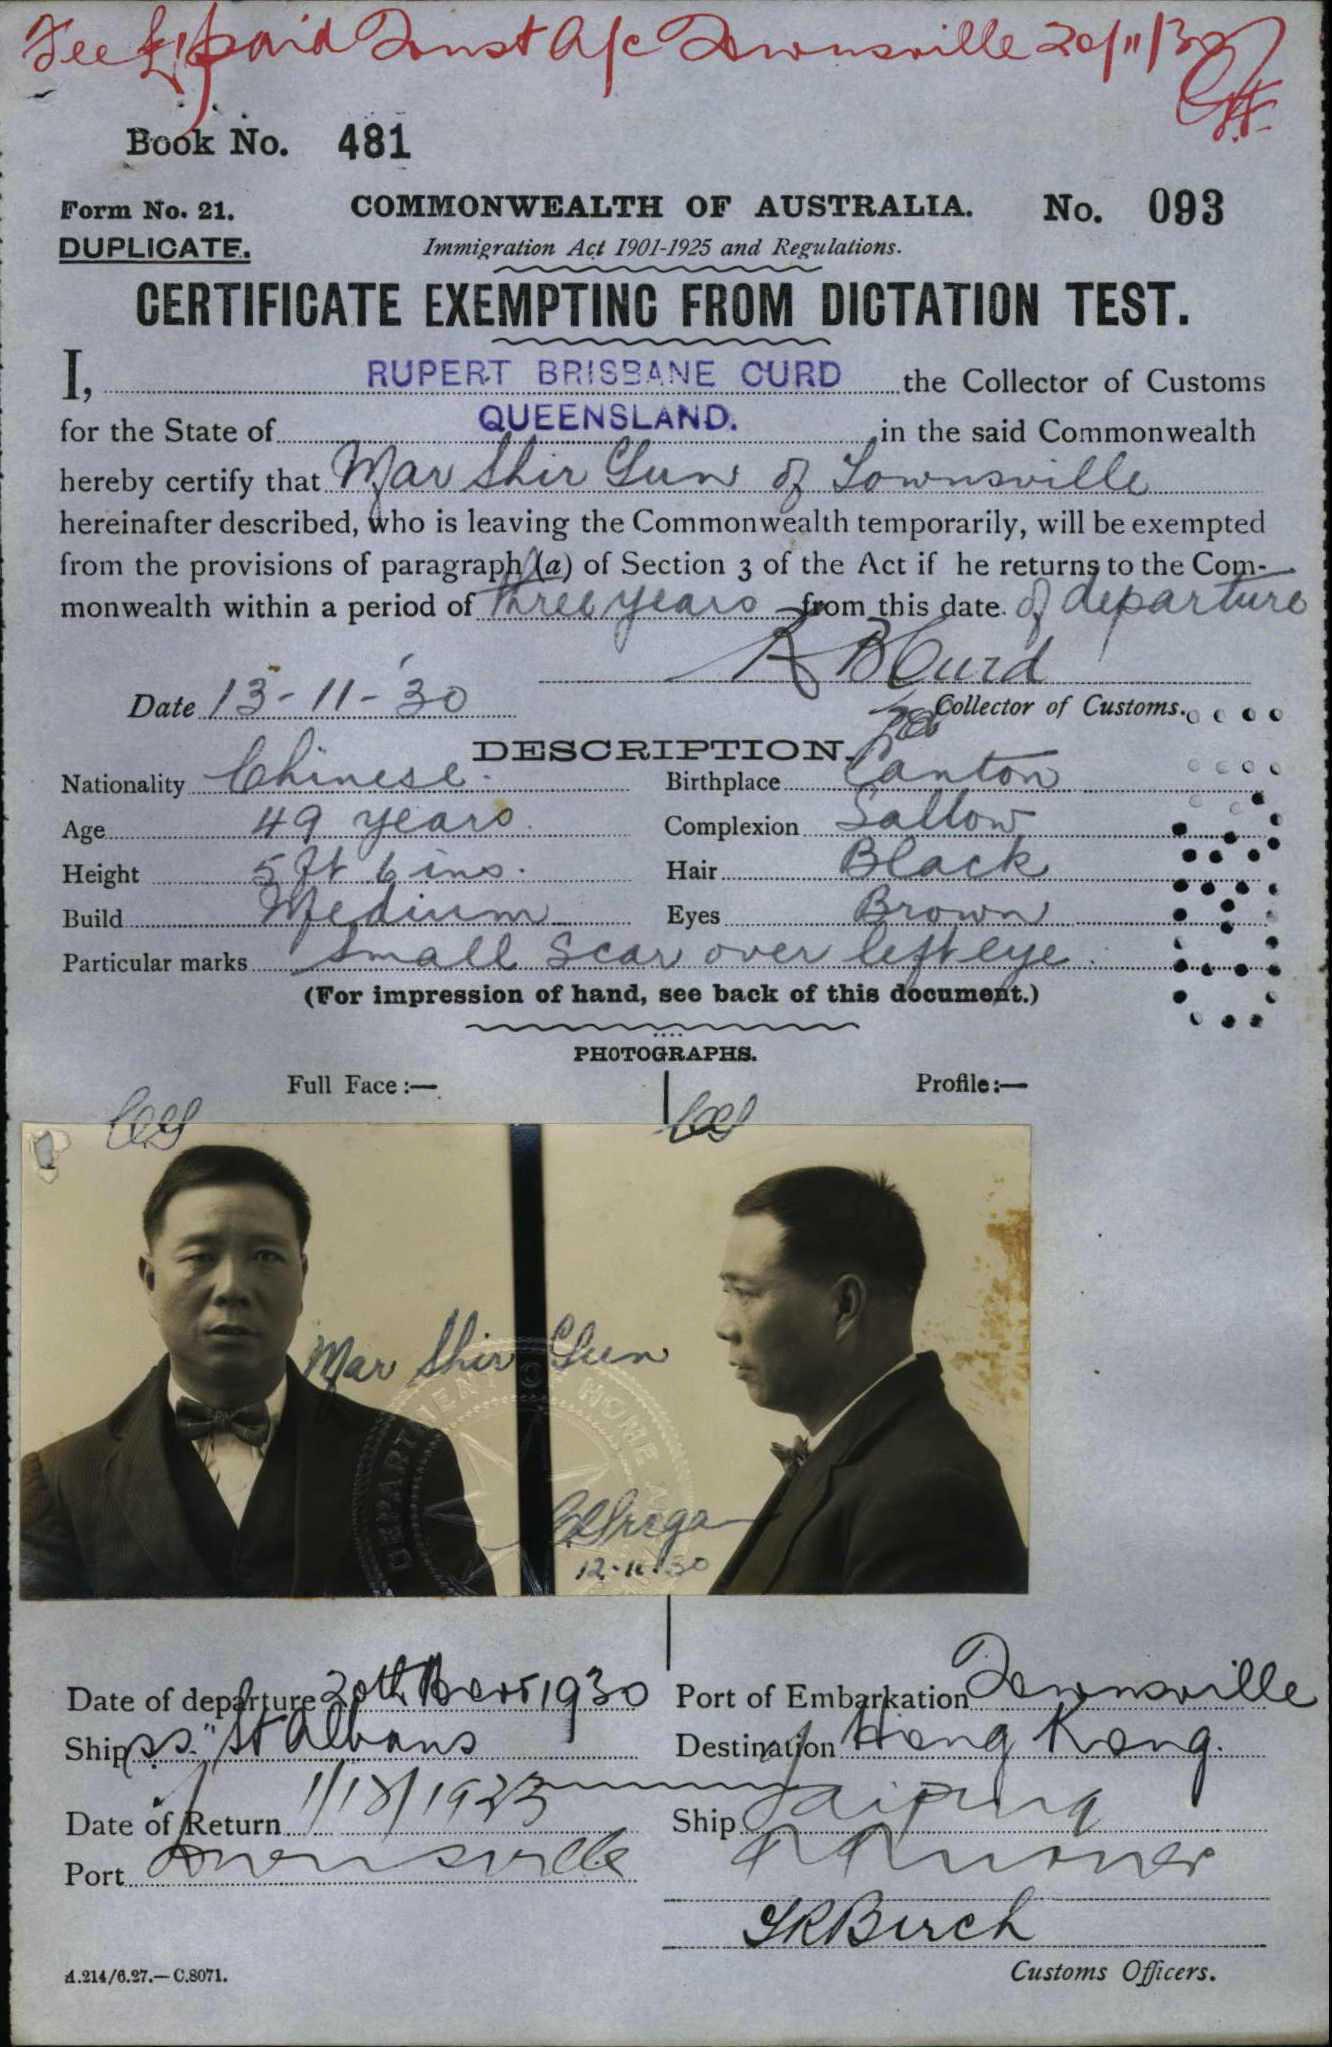 Fee £1 paid Trust A/c Townsville 20/11/30
Book No. 481
Form No. 21.
COMMONWEALTH OF AUSTRALIA.
No. 093
DUPLICATE.
Immigration Act 1901-1925 and Regulations.
CERTIFICATE EXEMPTING FROM DICTATION TEST.
I, RUPERT BRISBANE CURD the Collector of Customs
for the State of QUEENSLAND. in the said Commonwealth
hereby certify that Mar Shir Gun of Townsville
hereinafter described, who is leaving the Commonwealth temporarily, will be exempted
from the provisions of paragraph (a) of Section 3 of the Act if he returns to the Com-
monwealth within a period of three years from this date of departure
R B Curd
Date 13-11-'30
Collector of Customs.
DESCRIPTION.
Nationality Chinese. Birthplace Canton
Age 49 years Complexion Sallow
Height 5 ft 6 ins. Hair Black
Build Medium Eyes Brown
Particular marks Small scar over left eye.
(For impression of hand, see back of this document.)
PHOTOGRAPHS.
Full Face:— Profile:—
Mar Shir Gun
DEPARTMENT OF HOME A
12-11-30
Date of departure 20th 1930 Port of Embarkation Townsville
Ship s.s. "St Albans Destination Hong Kong.
Date of Return 1933 Ship Taiping
Port Townsville
Birch
Customs Officers.
A.214/6.27.—C.8071.